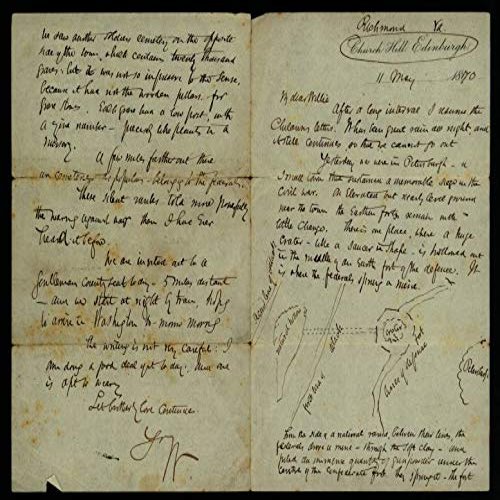 Richmond Va
Church Hill Edinburgh
11 May 1870
My dear Willie
After a long interval I resume the
letters. It has been great rain all night, and
it still continues so that we cannot go out
Yesterday we were in Petersburgh - a
small town that sustained a memorable siege in the
Civil war. An elevated but nearly level ground
near the town the Eastern forts remain with
little change. There's one place, where a huge
Crater - like a Saucer in shape - is hollowed out
in the middle of an Earth fort of the defence. It
is where the federals sprung a mine.
national ravine
attack
Crater
Lines of defense fort
From the side of a national ravine, between their lines, the
federals drove a mine - through the soft clay - and
piled an immense quantity of gunpowder under the
Centre of the Confederate fort. They sprung it - the fort
We saw another Soldiers cemetery on the opposite
side of the town, which contains twenty thousand
graves - but it was not so impressive to the Sense,
because it had not the wooden pillars for
grave stones. Each grave has a low post, with
a number - like plants in a
nursery.
A few miles further out there
is belonging to the federals.
These silent ranks told more powerfully
the meaning against war than I have Ever
heard it before.
We are invited out to a
Gentlemans Country Seat to day - 5 miles distant
- and we start at night by train, hoping
to arrive in Washington to morrow morning
The writing is not very careful. I
am doing a good deal of it to day. Here one
is apt to weary
Let brotherly love Continue.